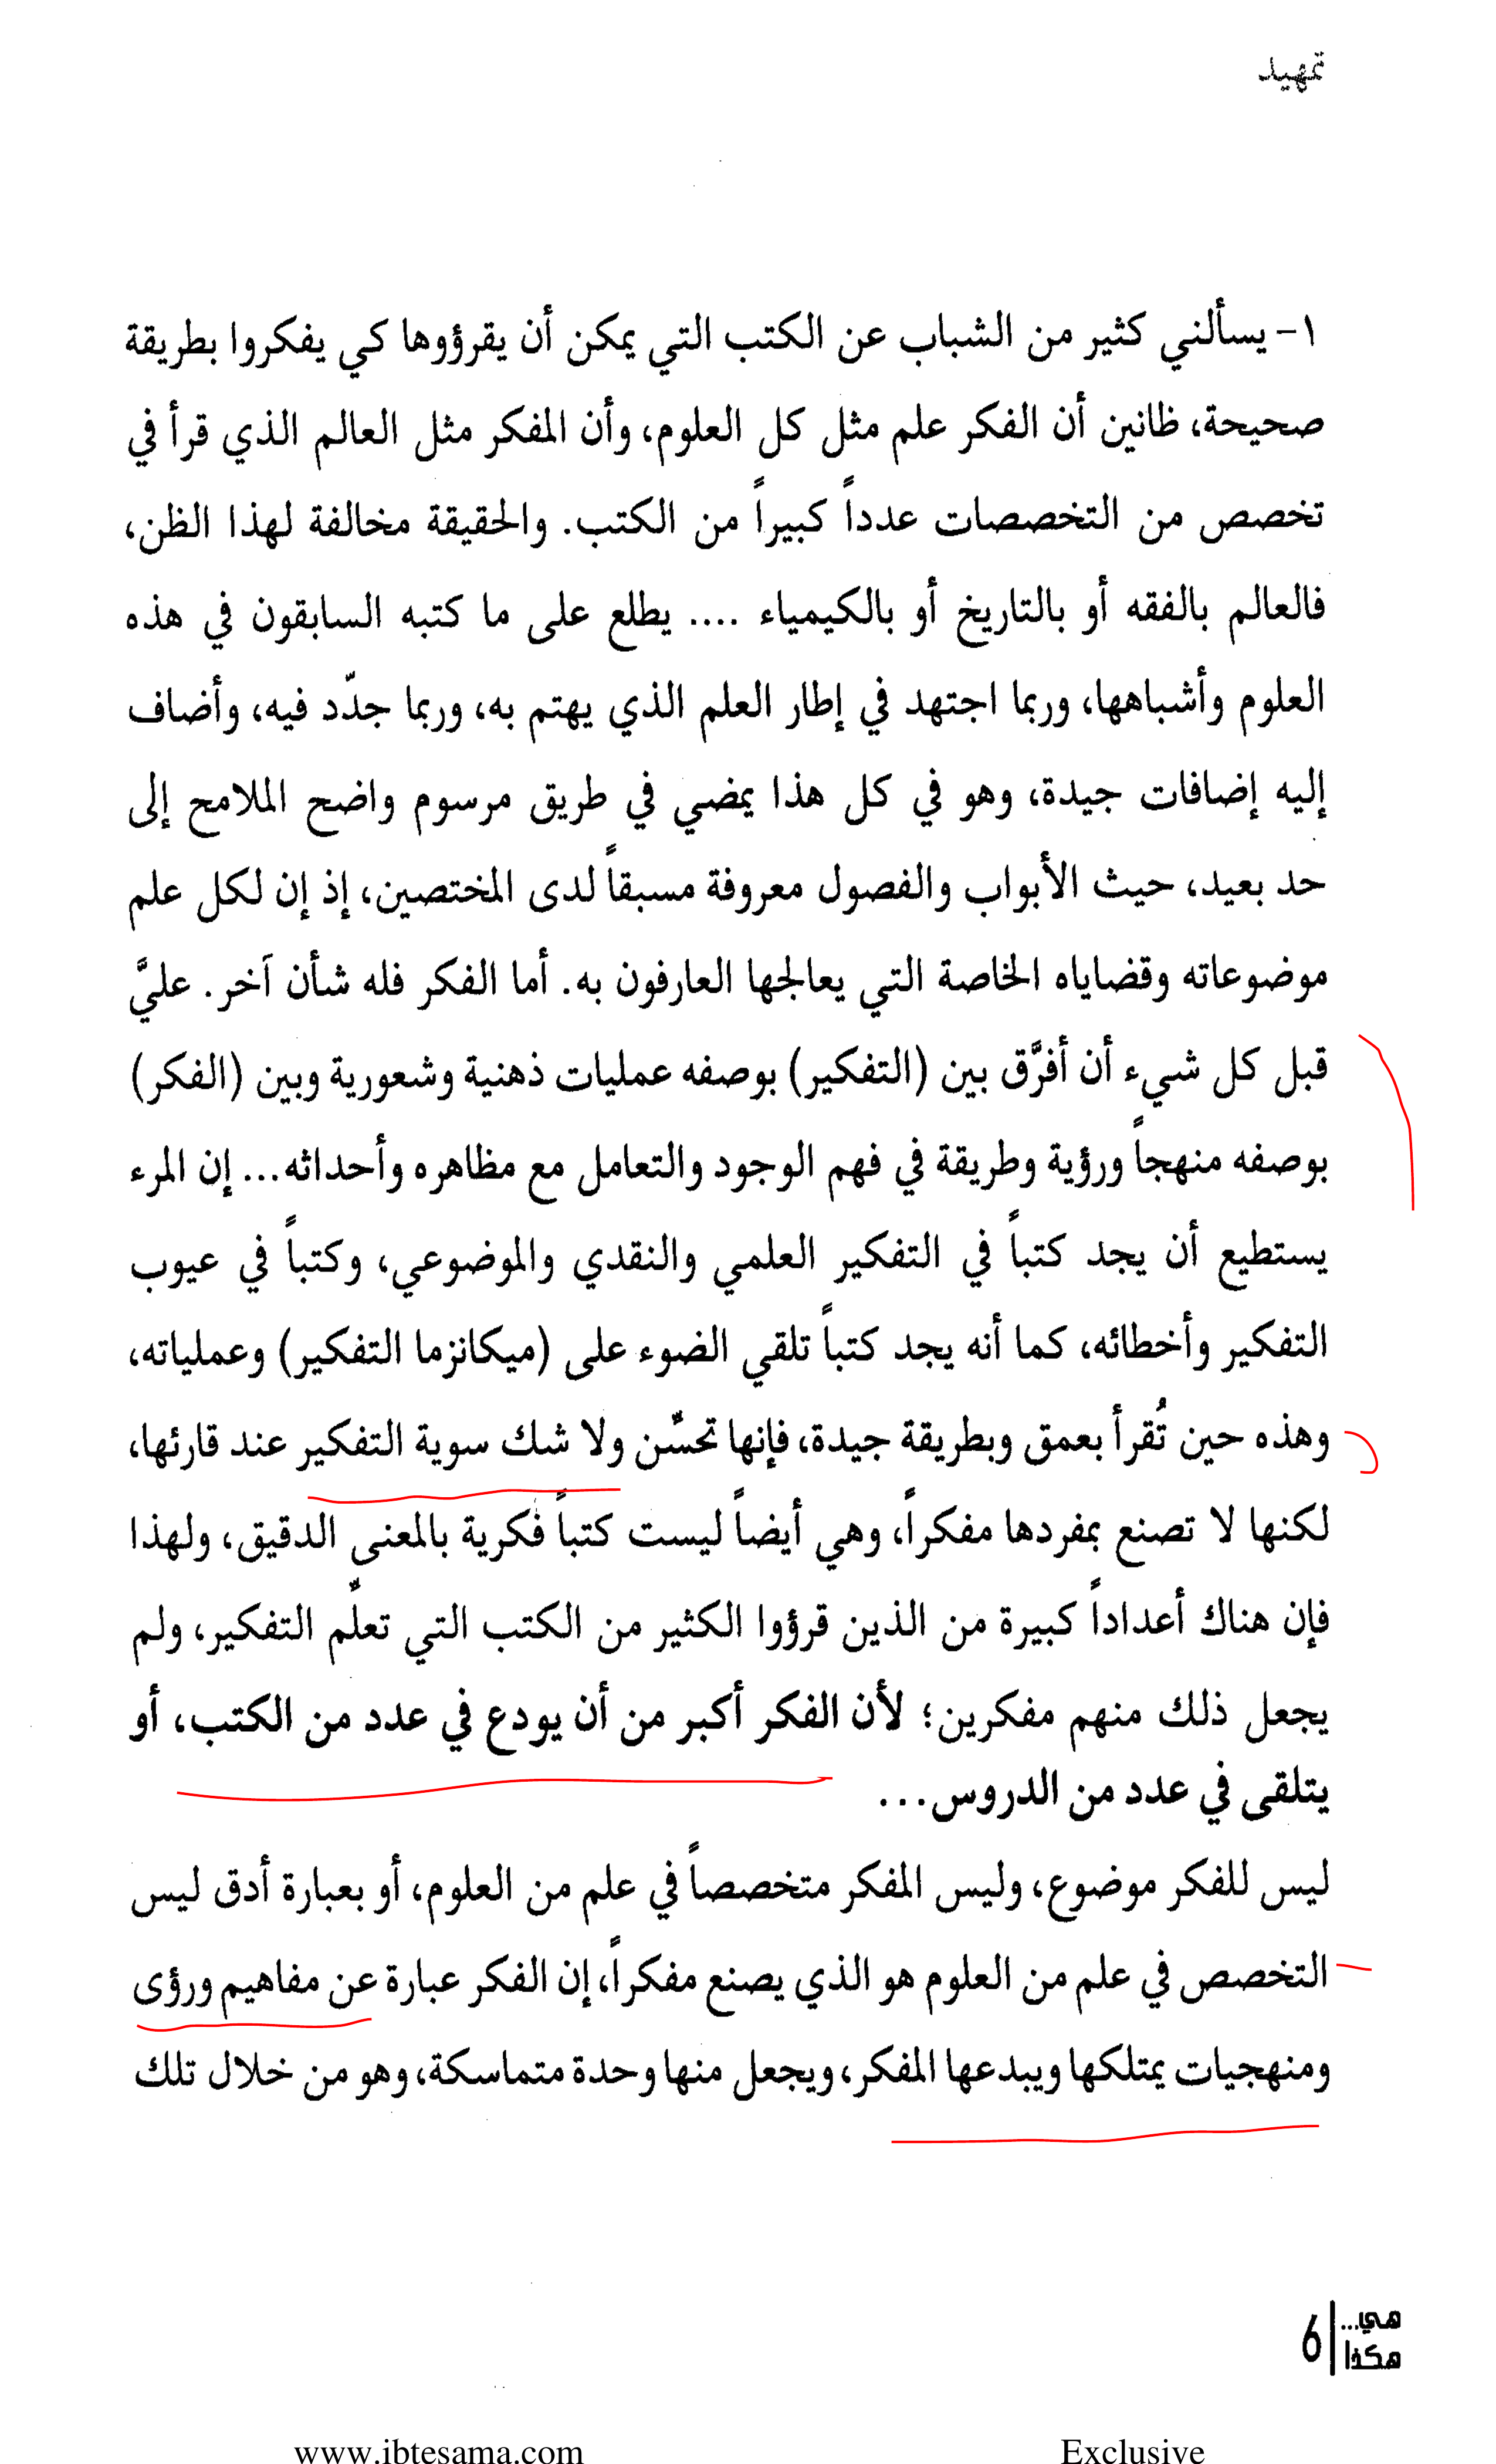 تمهيد
١- يسألني كثير من الشباب عن الكتب التي يمكن أن يقرؤوها كي يفكروا بطريقة
صحيحة، ظانين أن الفكر علم مثل كل العلوم، وأن المفكر مثل العالم الذي قرأ في
تخصص من التخصصات عدداً كبيراً من الكتب. والحقيقة مخالفة لهذا الظن،
فالعالم بالفقه أو بالتاريخ أو بالكيمياء .... يطلع على ما كتبه السابقون في هذه
العلوم وأشباهها، وربما اجتهد في إطار العلم الذي يهتم به، وربما جدّد فيه، وأضاف
إليه إضافات جيدة، وهو في كل هذا يمضي في طريق مرسوم واضح الملامح إلى
حد بعيد، حيث الأبواب والفصول معروفة مسبقاً لدى المختصين، إذ إن لكل علم
موضوعاته وقضاياه الخاصة التي يعالجها العارفون به. أما الفكر فله شأن آخر. عليَّ
قبل كل شيء أن أفرَّق بين (التفكير) بوصفه عمليات ذهنية وشعورية وبين (الفكر)
بوصفه منهجاً ورؤية وطريقة في فهم الوجود والتعامل مع مظاهره وأحداثه... إن المرء
يستطيع أن يجد كتباً في التفكير العلمي والنقدي والموضوعي، وكتباً في عيوب
التفكير وأخطائه، كما أنه يجد كتباً تلقي الضوء على (ميكانزما التفكير) وعملياته،
وهذه حين تُقرأ بعمق وبطريقة جيدة، فإنها تحسِّن ولا شك سوية التفكير عند قارئها،
لكنها لا تصنع بمفردها مفكراً، وهي أيضاً ليست كتباً فكرية بالمعنى الدقيق، ولهذا
فإن هناك أعداداً كبيرة من الذين قرؤوا الكثير من الكتب التي تعلِّم التفكير، ولم
يجعل ذلك منهم مفكرين؛ لأن الفكر أكبر من أن يودع في عدد من الكتب، أو
يتلقى في عدد من الدروس...
ليس للفكر موضوع، وليس المفكر متخصصاً في علم من العلوم، أو بعبارة أدق ليس
التخصص في علم من العلوم هو الذي يصنع مفكراً، إن الفكر عبارة عن مفاهيم ورؤى
ومنهجيات يمتلكها ويبدعها المفكر، ويجعل منها وحدة متماسكة، وهو من خلال تلك
هي...
هكذا
6
www.ibtesama.com Exclusive